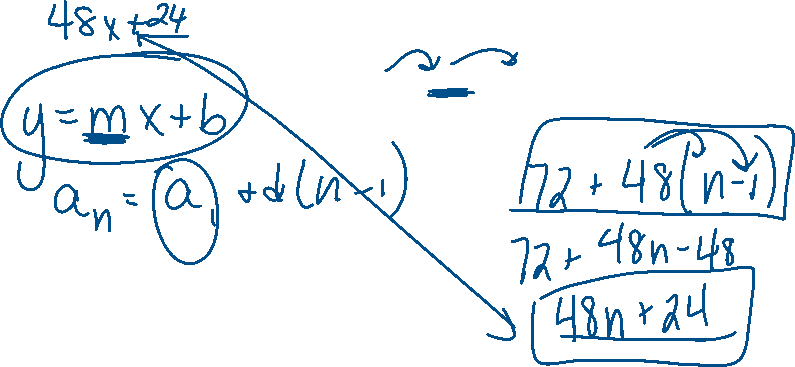 48x+24
y=mx+b
aₙ = a₁ + d(n-1)
72 + 48(n-1)
72 + 48n - 48
48n + 24